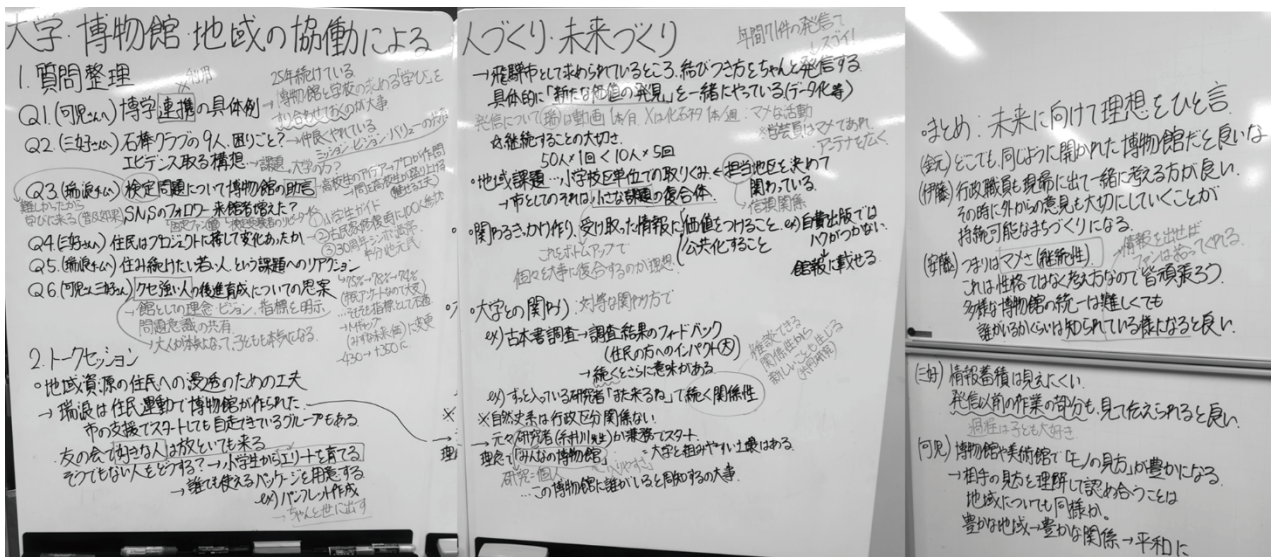 大学・博物館・地域の協働による
1. 質問整理
※利用
25年続けている
博物館と学校の求める「学び」を
すり合わせしていくのが大事
Q1.(可児さんへ)博学連携の具体例→
Q2(三好さんへ)石棒クラブの9人、困りごと?→仲良くやれている
ミッション・ビジョン・バリューの
エビデンス取る構想→課題、大学の
Q3(瑞浪さんへ)検定問題について博物館の助言
難しかったから
学びに来る
SNSのフォロワー来館者増えた?
Q4(三好さん)住民はプロジェクトに際して変化あったか
Q5.(瑞浪さんへ)住み続けたい若い人、という課題へのリアクション
Q6(可児さん三好さん)クセ強い人の後進育成についての思案
→館としての理念・ビジョン、指標を明示
問題意識の共有
→大人が本気になって、子どもも本気になる
→430→+350に
2. トークセッション
○地域資源の住民への浸透のための工夫
→瑞浪は住民運動で博物館が作られた
市の支援でスタートしても自走できているグループもある
友の会で好きな人は放といても来る
そうでもない人をどうする?→小学生からエリートを育てる
→誰でも使えるパッケージを用意する
ex)パンフレット作成
→ちゃんと世に出す
人づくり・未来づくり
年間71件の発信って
スゴイ!
→飛騨市として求められているところ、結びつき方をちゃんと発信する
具体的に「新たな価値の発見」を一緒にやっている(データ化等)
☆継続することの大切さ
50人×1回<10人×5回
※学芸員はマメであれ
アンテナを広く
○地域課題…小学校区単位での取りくみ←担当地区を決めて
関わっている
→市としてのそれは小さな課題の複合体
信頼関係
○関わるきっかけ作り、受け取った情報に価値をつけること
(公共化すること
ex)自費出版では
ハクがつかない
↓
館報に載せる
これをボトムアップで
個々を大事に複合するのが理想
○大学との関わり:対等な関わり方で
ex)古本書調査→調査結果のフィードバック
(住民の方へのインパクト大)
→続くとさらに意味がある
雑談できる
関係性から
新しいことも生じる
(共同研究)
ex)ずっと入っている研究者「また来るね」で続く関係性
※自然史系は行政区分関係ない
→元々研究者(糸井川先生)が兼務でスタート
理念で「みんなの博物館」
→大学と組みやすい土壌はある
研究=個人
…この博物館に誰がいると周知するの大事
○まとめ:未来に向けて理想をひと言
どこでも、同じように開かれた博物館だと良いな
(伊藤)行政職員も現場に出て一緒に考える方が良い
その時に外からの意見も大切にしていくことが
持続可能なまちづくりになる
情報を出せば
ファンは拾ってくれる
(安藤)つまりはマメさ(継続性)
これは性格ではなく考え方なので皆頑張ろう
多様な博物館の統一は難しくても
誰がいるかくらいは知られている様になると良い
(三好)情報蓄積は見えにくい
発信以前の作業の部分も、見て伝えられると良い
過程は子ども大好き
(可児)博物館や美術館で「モノの見方」が豊かになる
→相手の見方を理解して認め合うことは
地域についても同様か。
豊かな地域→豊かな関係→平和に